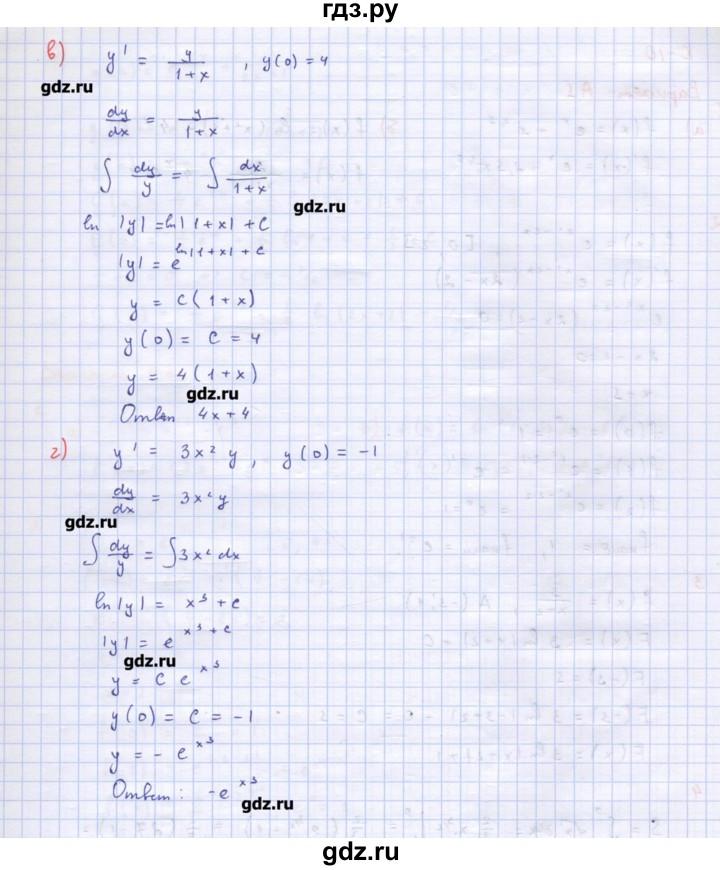 гдз.ру
в) y' = y/(1+x) , y(0) = 4
gdz.ru
dy/dx = y/(1+x)
∫ dy/y = ∫ dx/(1+x)
gdz.ru
ln |y| = ln|1+x| + C
|y| = e^(ln|1+x| + C)
y = C(1+x)
y(0) = C = 4
y = 4(1+x)
gdz.ru
Ответ 4x+4
г) y' = 3x² y , y(0) = -1
dy/dx = 3x² y
gdz.ru
∫ dy/y = ∫ 3x² dx
ln|y| = x³ + C
|y| = e^(x³ + C)
gdz.ru
y = C e^(x³)
y(0) = C = -1
y = - e^(x³)
Ответ: -e^(x³)
gdz.ru
gdz.ru